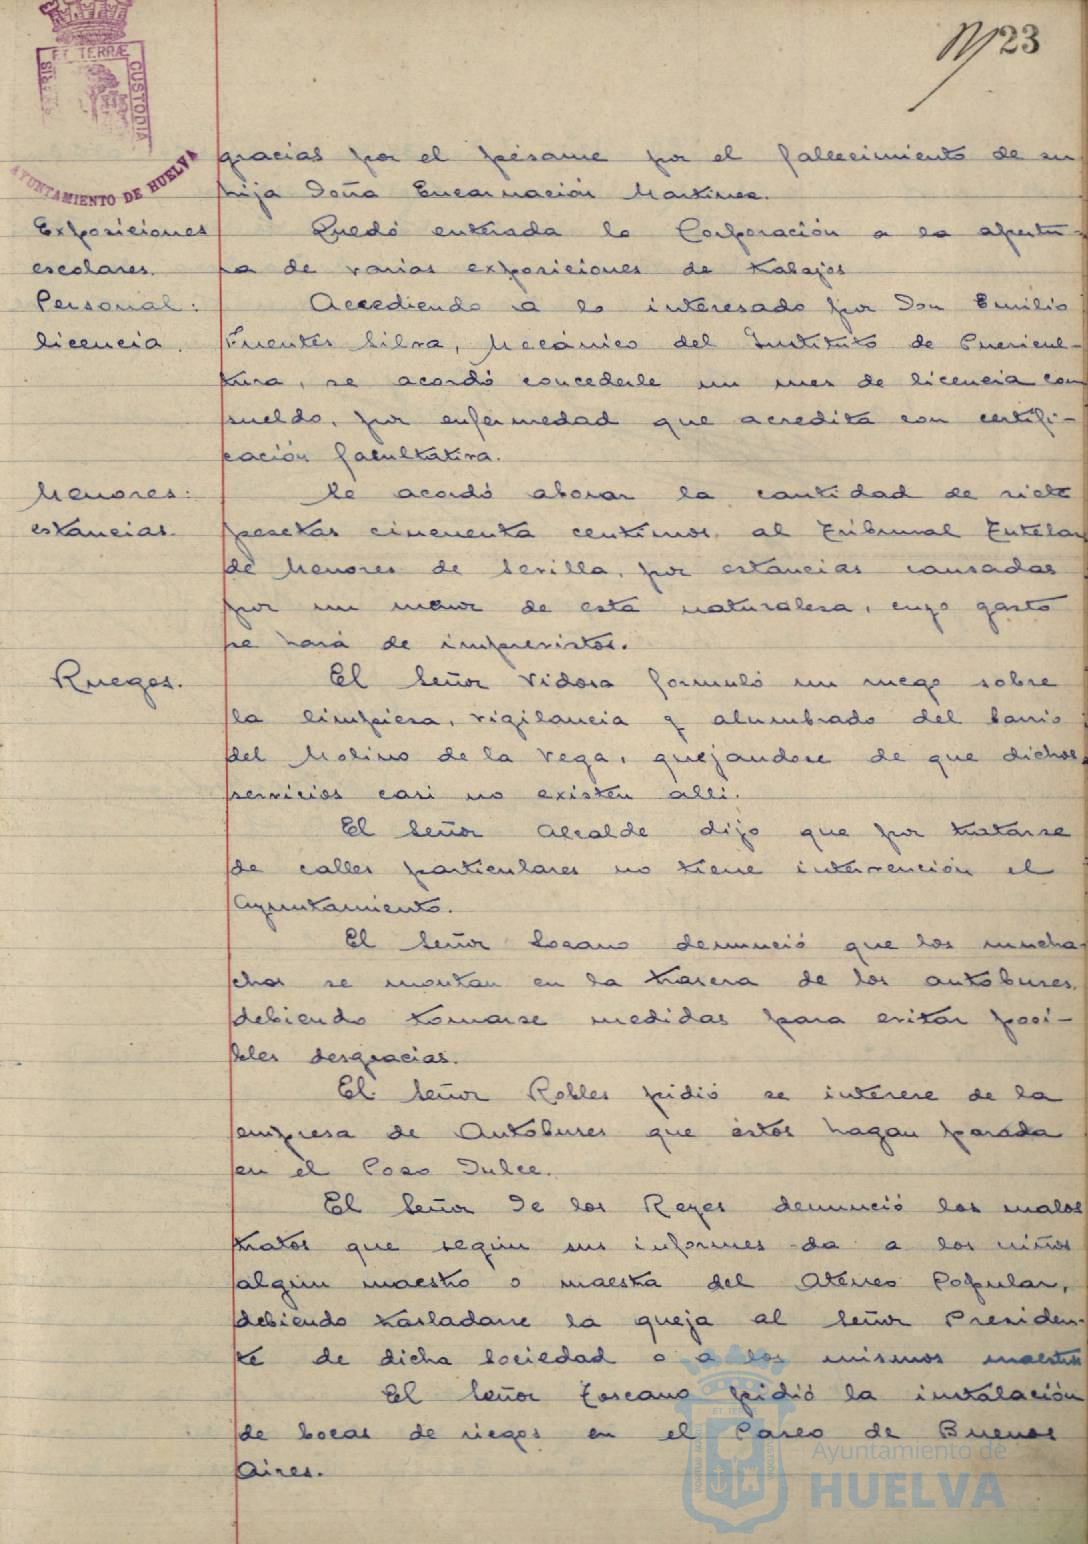 23
ET TERRÆ
CUSTODIA
AYUNTAMIENTO DE HUELVA
gracias por el pésame por el fallecimiento de su
hija Doña Encarnación Martinez.
Exposiciones
escolares.
Quedó enterada la Corporación a la apertu-
ra de varias exposiciones de trabajos
Personal:
licencia.
Accediendo a lo interesado por Don Emilio
Fuentes Silva, Mecánico del Instituto de Puericul-
tura, se acordó concederle un mes de licencia con
sueldo, por enfermedad que acredita con certifi-
cación facultativa.
Menores:
estancias.
Se acordó abonar la cantidad de siete
pesetas cincuenta centimos, al Tribunal Tutelar
de Menores de Sevilla, por estancias causadas
por un menor de esta naturaleza, cuyo gasto
se hará de imprevistos.
Ruegos.
El Señor Vidosa formuló un ruego sobre
la limpieza, vigilancia y alumbrado del barrio
del Molino de la Vega, quejandose de que dichos
servicios casi no existen alli.
El Señor Alcalde dijo que por tratarse
de calles particulares no tiene intervención el
Ayuntamiento.
El Señor Lozano denunció que los mucha-
chos se montan en la trasera de los autobuses,
debiendo tomarse medidas para evitar posi-
bles desgracias.
El Señor Robles pidió se interese de la
empresa de Autobuses que éstos hagan parada
en el Pozo Dulce.
El Señor De los Reyes denunció los malos
tratos que según sus informes da a los niños
algún maestro o maestra del Ateneo Popular,
debiendo trasladarse la queja al Señor Presiden-
te de dicha Sociedad o a los mismos maestros
El Señor Toscano pidió la instalación
de bocas de riegos en el Paseo de Buenos
Aires.
Ayuntamiento de
HUELVA